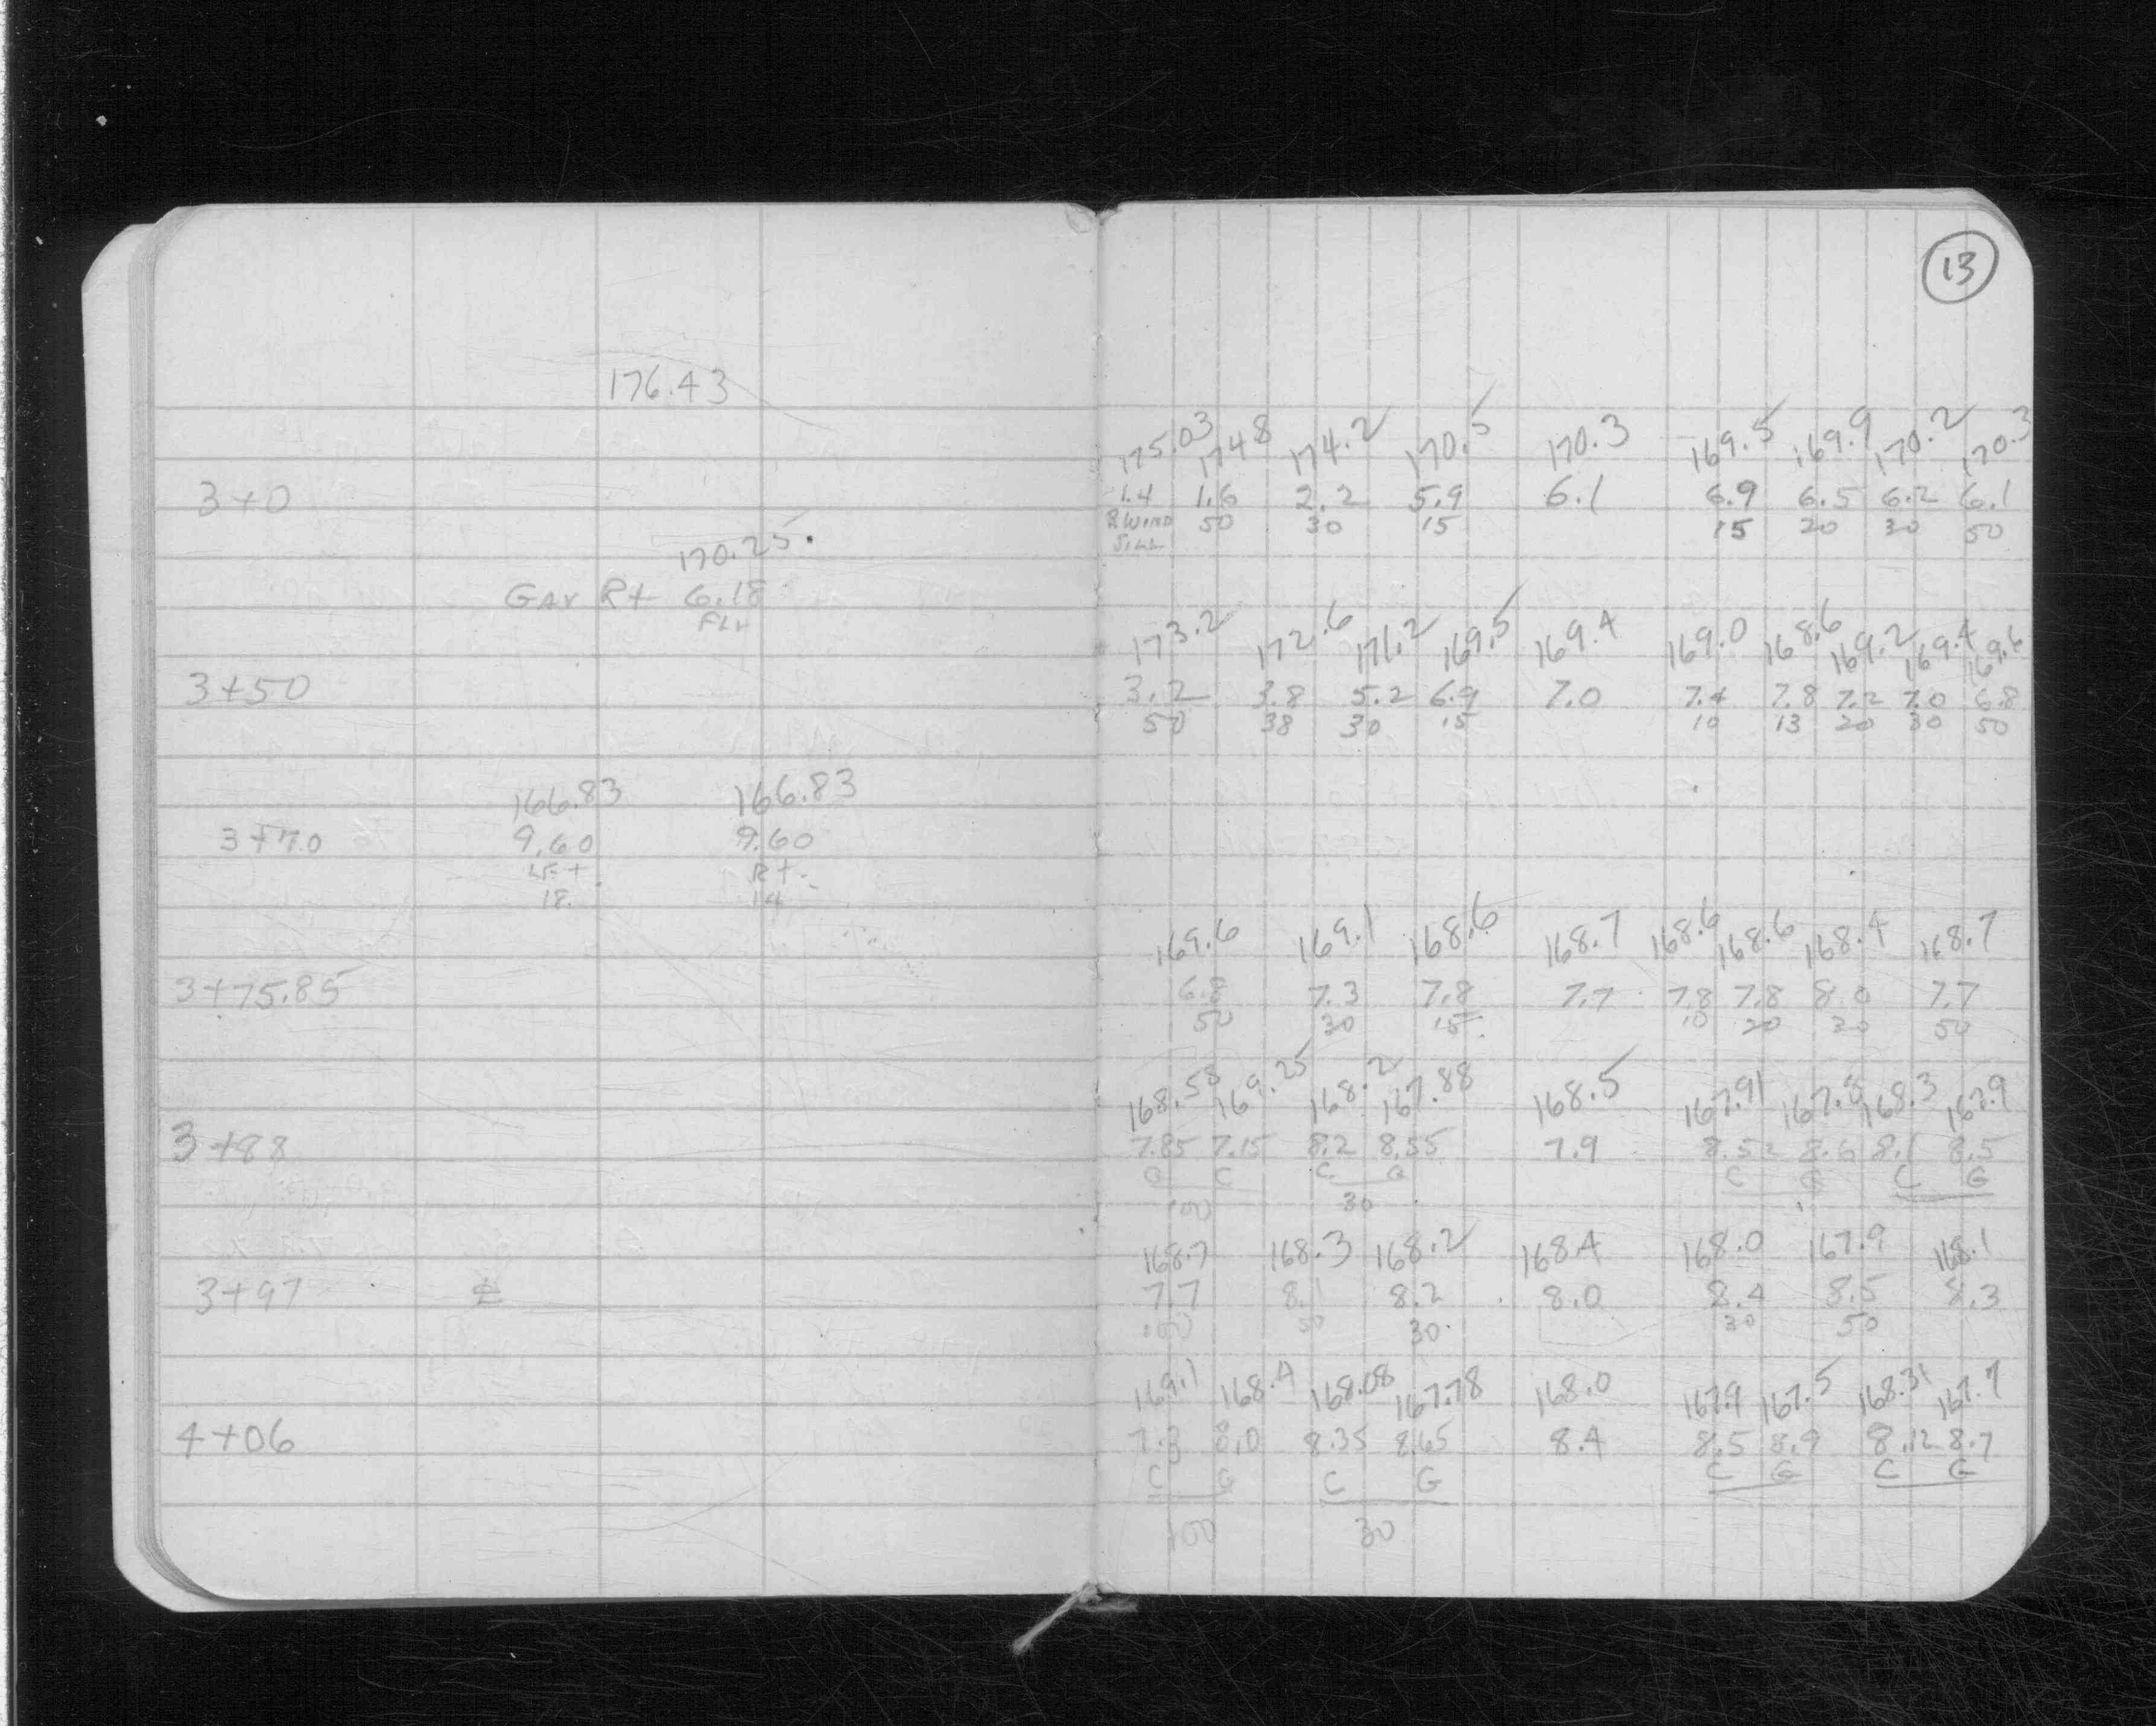 176.43
3+0
170.25.
GAR Rt 6.18
FLR
3+50
166.83 166.83
3+70 9.60 9.60
LFt Rt.
18 14
3+75.85
3+88
3+97 ⅊
4+06
13
175.03 174.8 174.2 170.5 170.3 169.5 169.9 170.2 170.3
1.4 1.6 2.2 5.9 6.1 6.9 6.5 6.2 6.1
WIND 50 30 15 15 20 30 50
SILL
173.2 172.6 171.2 169.5 169.4 169.0 168.6 169.2 169.4 169.6
3.2 3.8 5.2 6.9 7.0 7.4 7.8 7.2 7.0 6.8
50 38 30 15 10 13 20 30 50
169.6 169.1 168.6 168.7 168.6 168.6 168.4 168.7
6.8 7.3 7.8 7.7 7.8 7.8 8.0 7.7
50 30 15 10 20 30 50
168.58 169.25 168.2 167.88 168.5 167.91 167.8 168.3 167.9
7.85 7.15 8.2 8.55 7.9 8.52 8.6 8.1 8.5
G C C G C G C G
100 30
168.7 168.3 168.2 168.4 168.0 167.9 168.1
7.7 8.1 8.2 8.0 8.4 8.5 8.3
100 50 30 30 50
169.1 168.4 168.08 167.78 168.0 167.9 167.5 168.31 167.7
7.3 8.0 8.35 8.65 8.4 8.5 8.9 8.12 8.7
C G C G C G C G
100 30